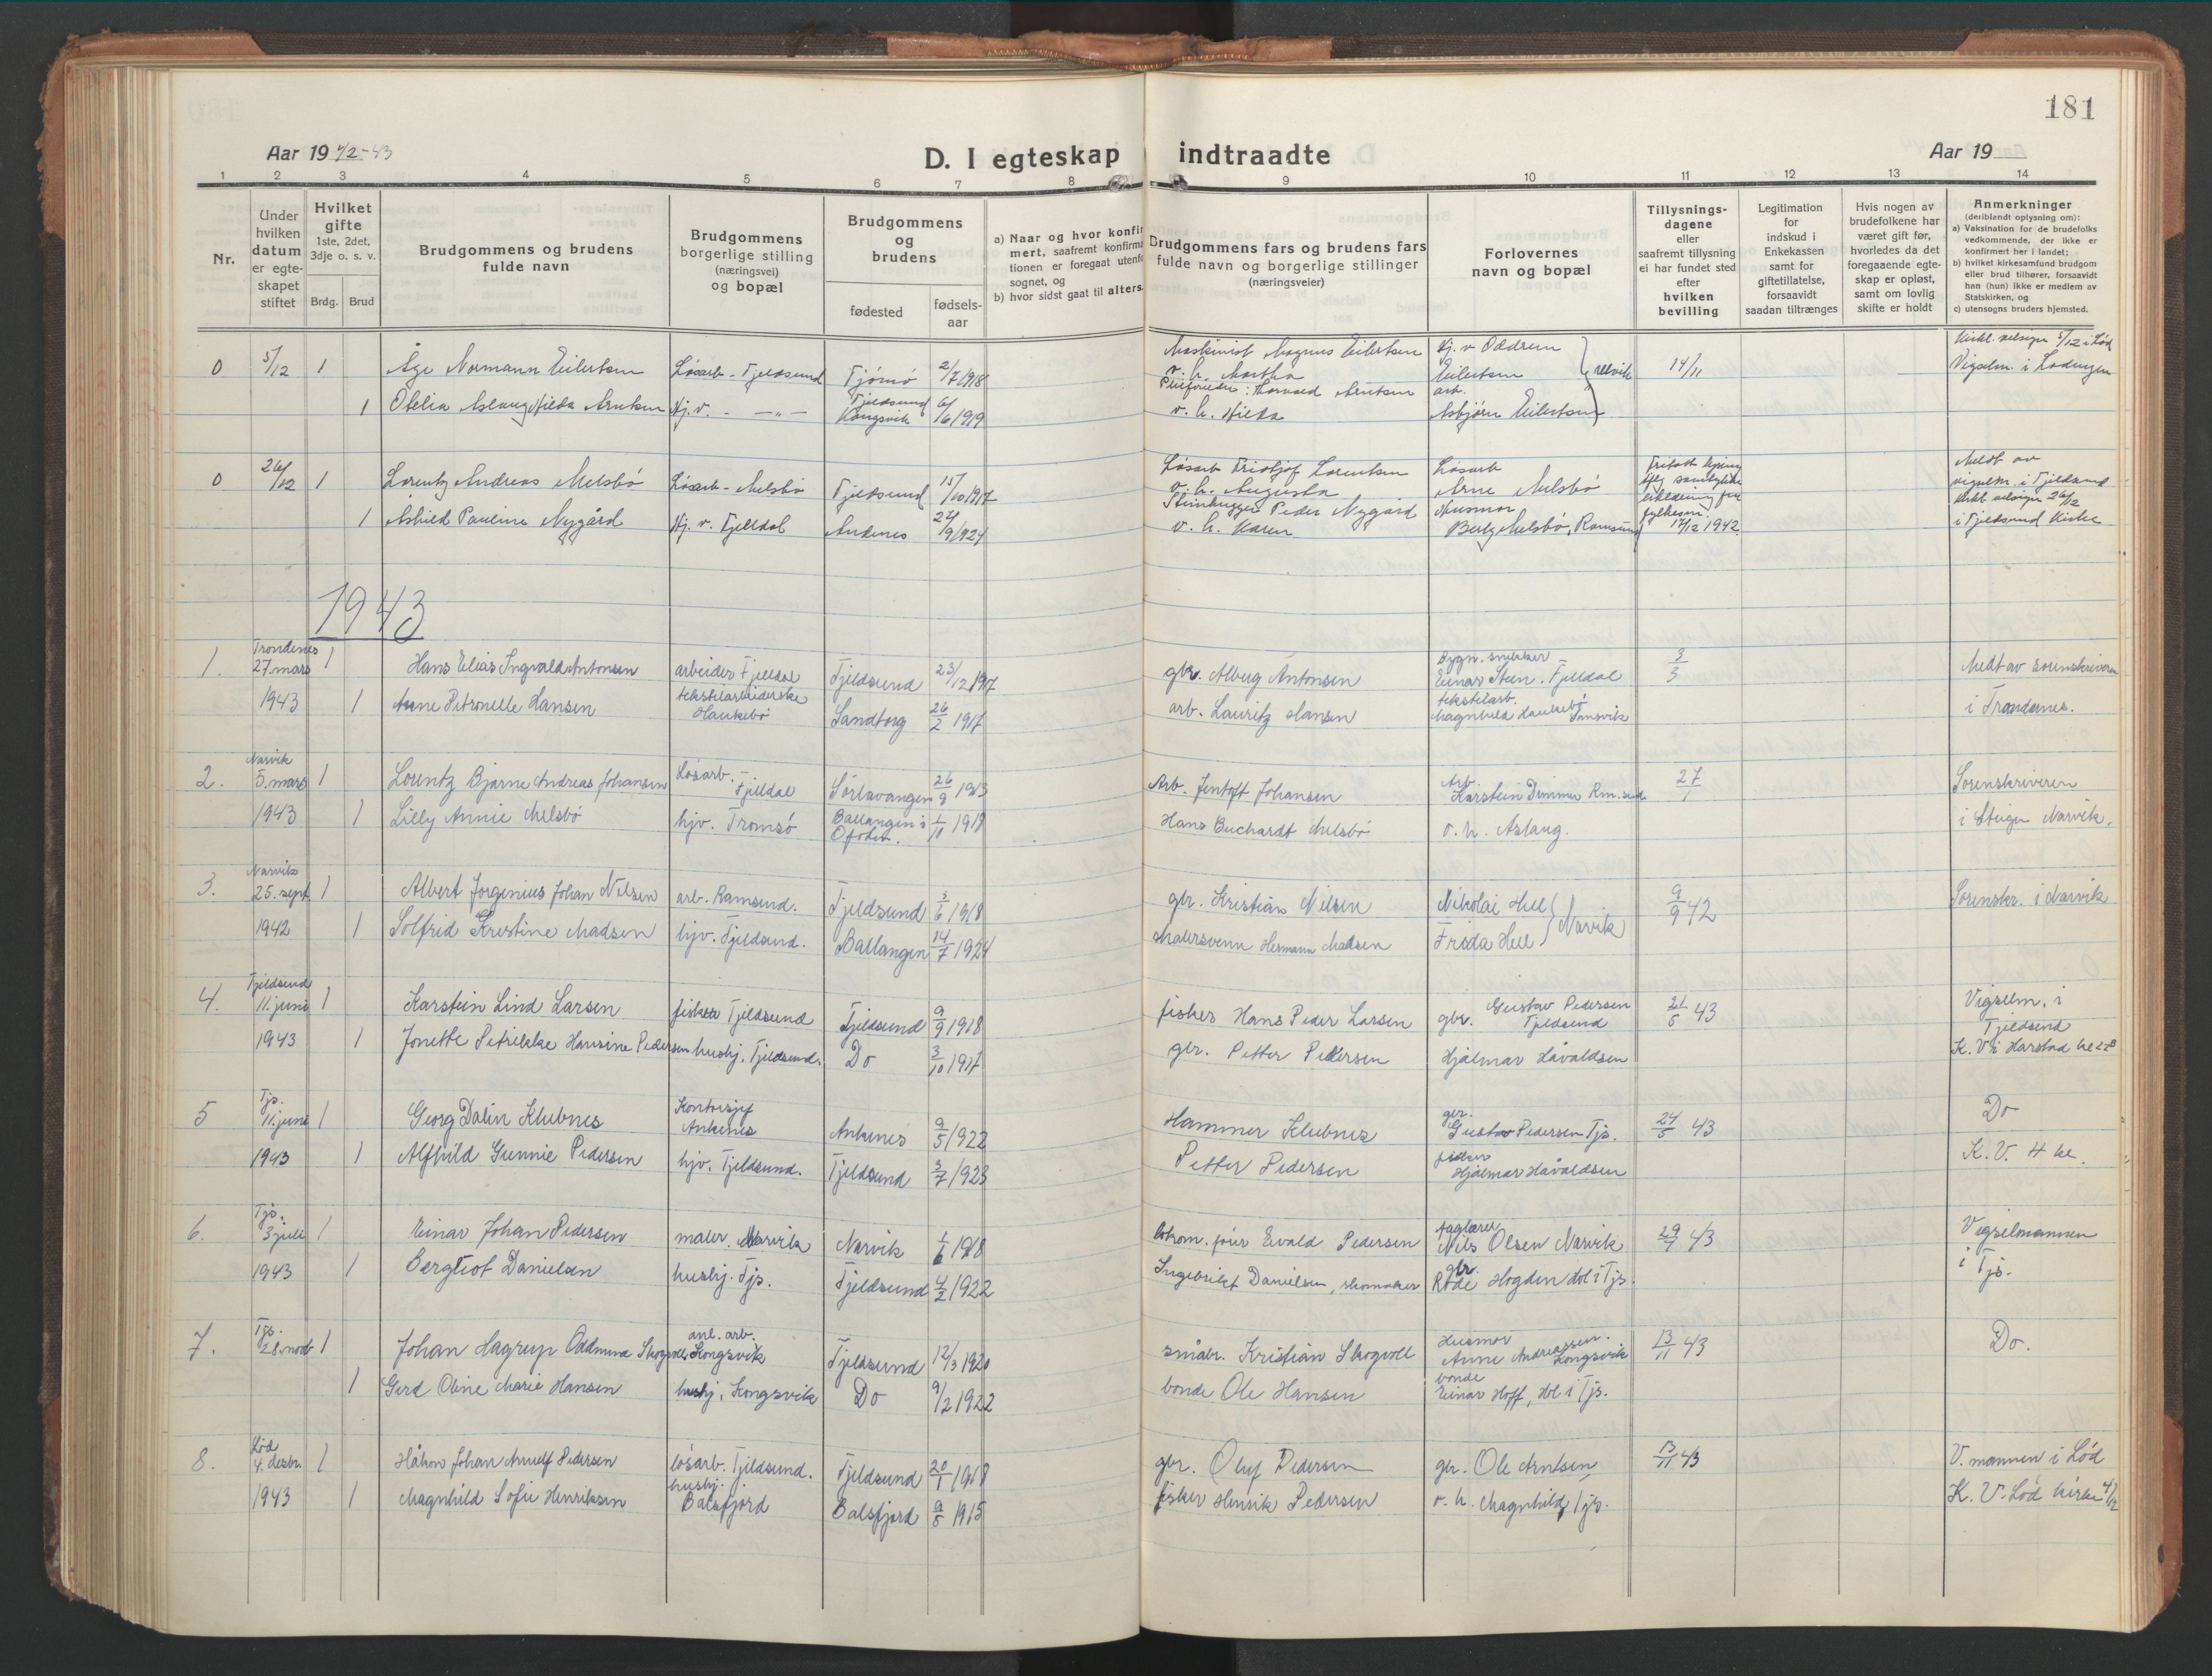 181
Aar 19 42-43
D. I egteskap indtraadte
Aar 19
1 2 3 4 5 6 7 8 9 10 11 12 13 14
Nr.
Under hvilken datum er egteskapet stiftet
Hvilket gifte 1ste, 2det, 3dje o. s. v.
Brdg. Brud
Brudgommens og brudens fulde navn
Brudgommens borgerlige stilling (næringsvei) og bopæl
Brudgommens og brudens
fødested
fødselsaar
a) Naar og hvor konfirmert, saafremt konfirmationen er foregaat utenfor sognet, og
b) hvor sidst gaat til alters.
Brudgommens fars og brudens fars fulde navn og borgerlige stillinger (næringsveier)
Forlovernes navn og bopæl
Tillysningsdagene eller saafremt tillysning ei har fundet sted efter hvilken bevilling
Legitimation for indskud i Enkekassen samt for giftetillatelse, forsaavidt saadan tiltrænges
Hvis nogen av brudefolkene har været gift før, hvorledes da det foregaaende egteskap er opløst, samt om lovlig skifte er holdt
Anmerkninger
(deriblandt oplysning om):
a) Vaksination for de brudefolks vedkommende, der ikke er konfirmert her i landet;
b) hvilket kirkesamfund brudgom eller brud tilhører, forsaavidt han (hun) ikke er medlem av Statskirken, og
c) utensogns bruders hjemsted.
0 5/12 1 Åge Normann Eilertsen Løsarb - Fjeldsund Tjömö 2/7 1918 Maskinist Magnus Eilertsen Hj. v. Oddrun 14/11
v. h. Martha Eilertsen Vigselm. i Lødingen
1 Aslaug Hilda Arntsen Hj. v. - — „ - Tjeldsund Kongsvik 6/6 1919 v. h. Hilda Asbjörn Eilertsen
0 26/12 1 Lorentz Andreas Melsbö Løsarb - Melsbö Tjeldsund 15/10 1917 Løsarb Fridtjof Lorentsen Løsarb
v. h. Augusta Arne Melsbö
Meldt av vigselm. i Tjeldsund
1 Pauline Nygård Hj. v. Fjelldal Andenes 24/9 1924 Peder Nygård Husmor
v. h. Karen Melsbö, Ramsund 17/12 1942 26/12 i Tjeldsund Kirke
1943
1. Trondenes 27. mars 1943 1 Hans Elias Ingvald Antonsen arbeider Fjelldal Tjeldsund 23/12 1917 gbr. Antonsen Bygn. snekker Einar Steen. Fjelldal 3/3 Meldt av sorenskriveren
1 Anne Petronelle Hansen tekstilarbeiderske Haukebö Sandtorg 26/2 1917 arb. Lauritz Hansen tekstilarb. Magnhild Haukebö i Trondenes.
2. Narvik 5. mars 1943 1 Lorentz Bjarne Andreas Johansen Løsarb. Fjelldal 26/8 1913 Arb. Jentoft Johansen Arb. Karstein 27/1 Sorenskriveren
1 Lilly Annie Melsbö hjv. Tromsö Ballangen i Ofoten. 1/10 1918 Hans Buchardt Melsbö v. h. Aslaug. Narvik.
3. Narvik 25. sept 1942 1 Albert Jorgenius Johan Nilsen arb. Ramsund. Tjeldsund 3/6 1918 gbr. Kristian Nilsen Nikolai Hell 9/9 42 Sorenskr. i Narvik
1 Solfrid Kristine Madsen hjv. Tjeldsund. Ballangen 14/7 1924 Malersvenn Hermann Madsen Frida Hell Narvik
4. Tjeldsund 11. juni 1943 1 Karstein Lind Larsen fisker Tjeldsund Tjeldsund 9/9 1918 fisker Hans Peder Larsen gbr. Gustav Pedersen Tjeldsund 21/5 43 Vigselm. i Tjeldsund
1 Jonette Petrikke Hansine Pedersen hushj. Tjeldsund. Do 3/10 1917 gbr. Petter Pedersen Hjalmar Håvaldsen K. V. i Harstad
5 Tjs. 11. juni 1943 1 Georg Dalin Klubnes Kontorsjef Ankenes Ankenes 9/5 1922 Hammer Klubnes gbr. Gustav Pedersen Tjs. 24/5 43 Do
1 Alfhild Gunnie Pedersen hjv. Tjeldsund. Tjeldsund 3/7 1923 Petter Pedersen fisker Hjalmar Håvaldsen K. V.
6. Tjs. 3 juli 1943 1 Einar Johan Pedersen maler. Narvik Narvik 1/6 1918 Evald Pedersen Nils Olsen Narvik 43 Vigselmannen
1 Bergliot Danielsen hushj. Tjs. Tjeldsund 4/2 1922 Ingebrikt Danielsen, skomaker gbr. Hol i Tjs. i Tjs.
7. Tjs. 28. nov 1 Johan Hagrup Oddmund Skogvoll anl. arb. Kongsvik Tjeldsund 12/3 1920 småbr. Kristian Skogvoll Husmor Anne Andreassen. Kongsvik 13/11 43 Do.
1 Gerd Oline Marie Hansen hushj. Kongsvik Do 9/2 1922 bonde Ole Hansen bonde Einar Hoff, Hol i Tjs.
8. Lød 4. desbr. 1943 1 Håkon Johan Arnulf Pedersen løsarb. Tjeldsund. Tjeldsund 20/1 1918 gbr. Oluf Pedersen gbr. Ole Arntsen 13/11 43 V. mannen i Lød
1 Magnhild Sofie Henriksen hushj. Balsfjord Balsfjord 9/5 1915 fisker Henrik Pedersen v. h. Magnhild, Tjs. K. V. Lød kirke 4/12